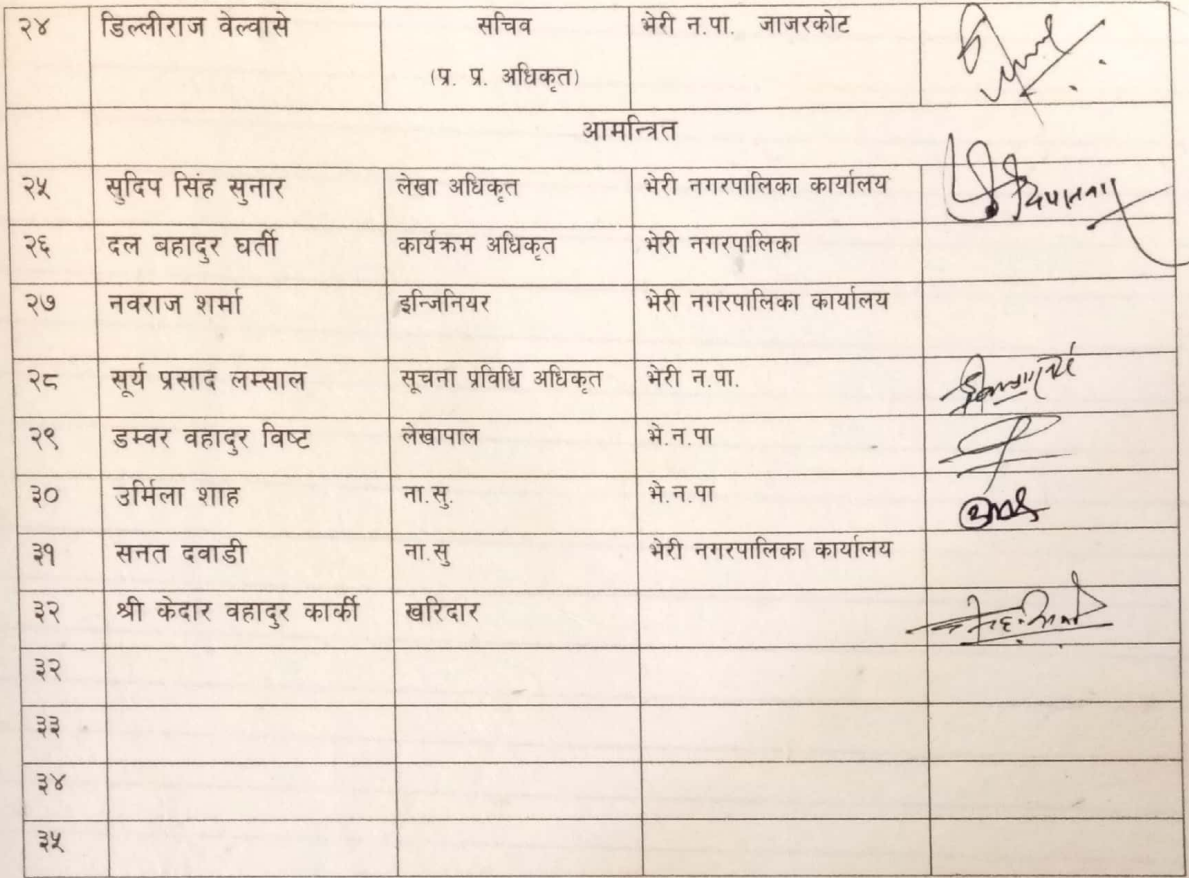 २४ डिल्लीराज वेल्वासे सचिव भेरी न.पा. जाजरकोट
(प्र. प्र. अधिकृत)
आमन्त्रित
२५ सुदिप सिंह सुनार लेखा अधिकृत भेरी नगरपालिका कार्यालय
२६ दल बहादुर घर्ती कार्यक्रम अधिकृत भेरी नगरपालिका
२७ नवराज शर्मा इन्जिनियर भेरी नगरपालिका कार्यालय
२८ सूर्य प्रसाद लम्साल सूचना प्रविधि अधिकृत भेरी न.पा.
२९ डम्वर वहादुर विष्ट लेखापाल भे.न.पा
३० उर्मिला शाह ना.सु. भे.न.पा
३१ सनत दवाडी ना.सु भेरी नगरपालिका कार्यालय
३२ श्री केदार वहादुर कार्की खरिदार
३२
३३
३४
३५